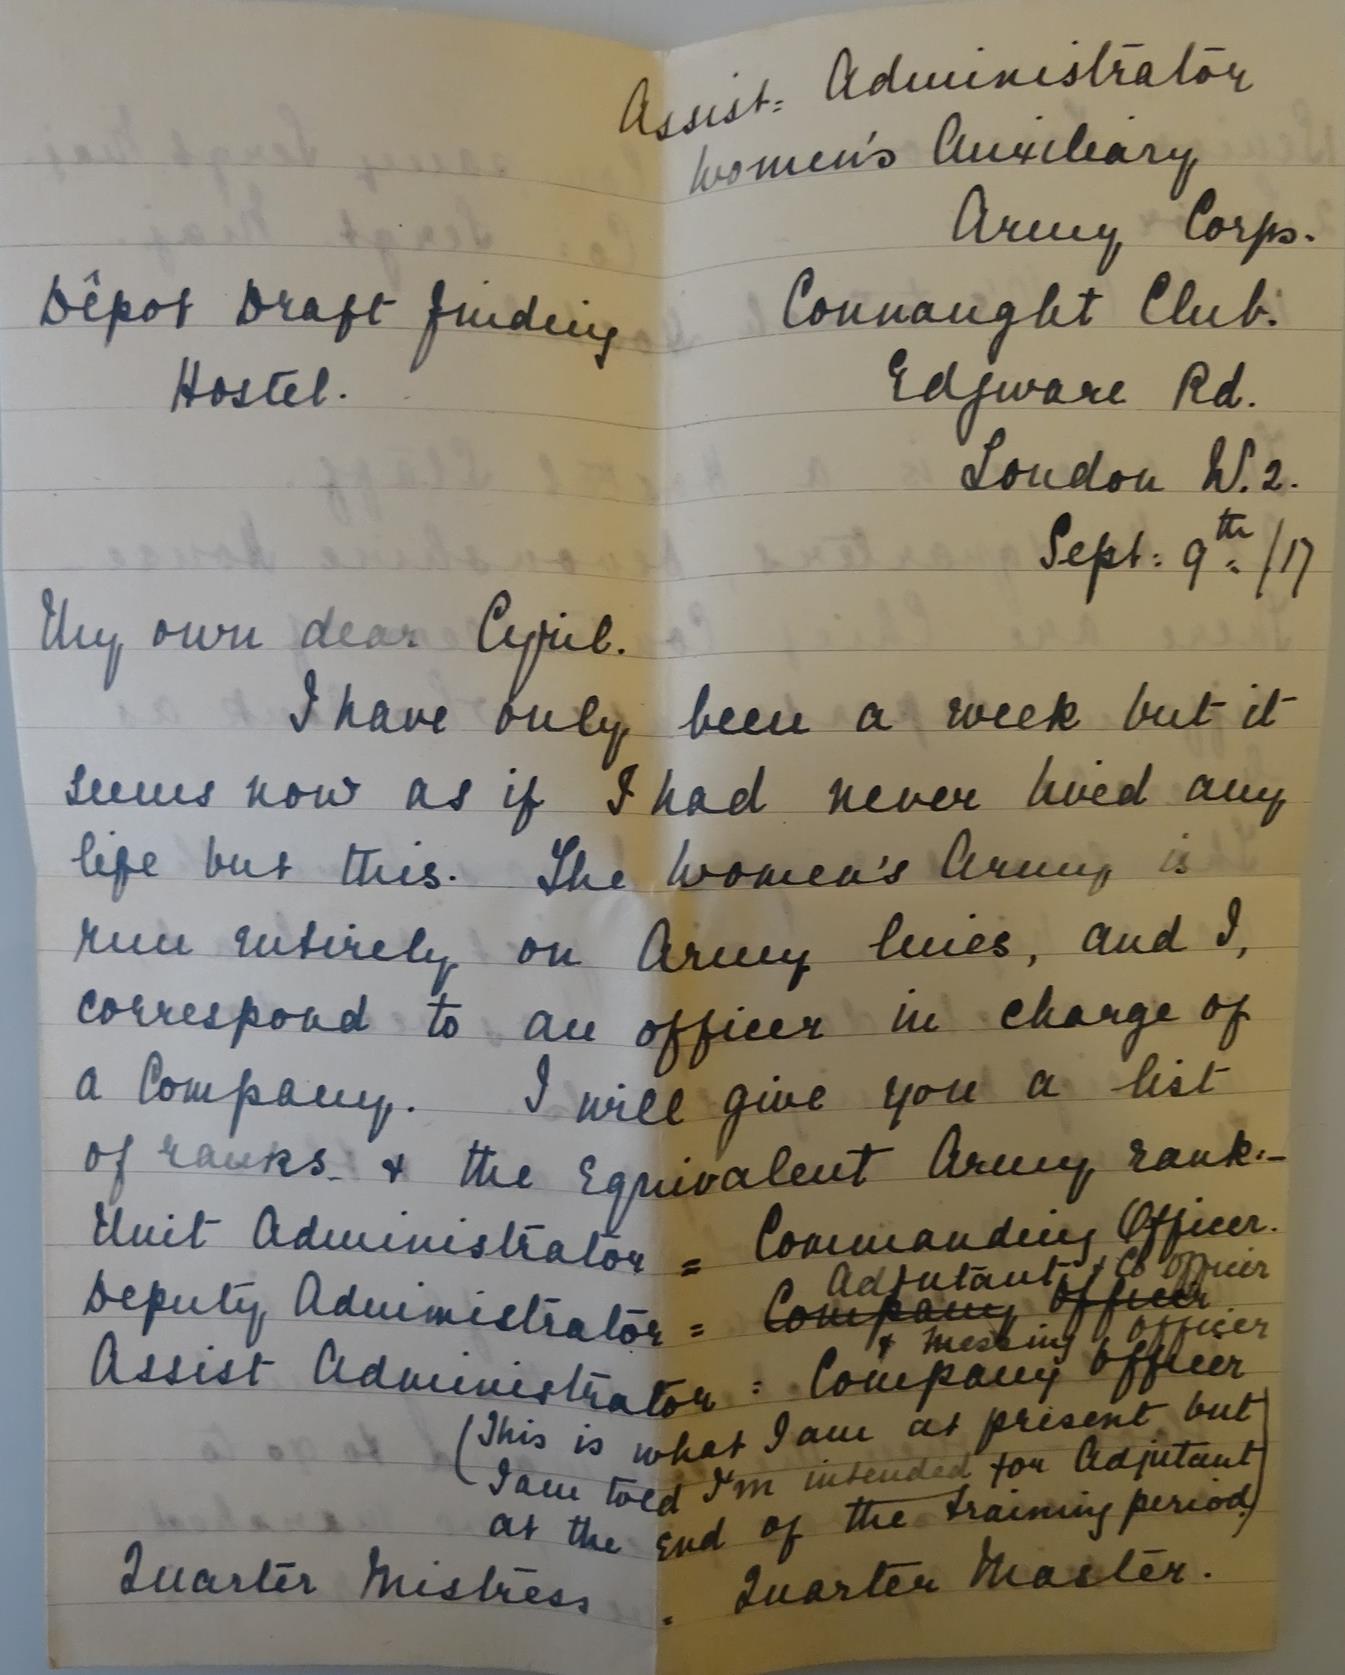 Assist: Administrator
Women's Auxiliary
Army Corps.
Dêpot Draft finding
Hostel.
Connaught Club.
Edgware Rd.
London W. 2.
Sept: 9th /17
My own dear Cyril.
I have only been a week but it
seems now as if I had never lived any
life but this. The Women's Army is
run entirely on Army lines, and I,
correspond to an officer in charge of
a Company. I will give you a list
of ranks & the Equivalent Army rank:-
Unit Administrator = Commanding Officer.
Adjutant & Co Officer
Deputy Administrator = Company Officer
& Messing Officer
Assist Administrator = Company Officer
(This is what I am at present but
I am told I'm intended for Adjutant
at the End of the training period)
Quarter Mistress = Quarter Master.